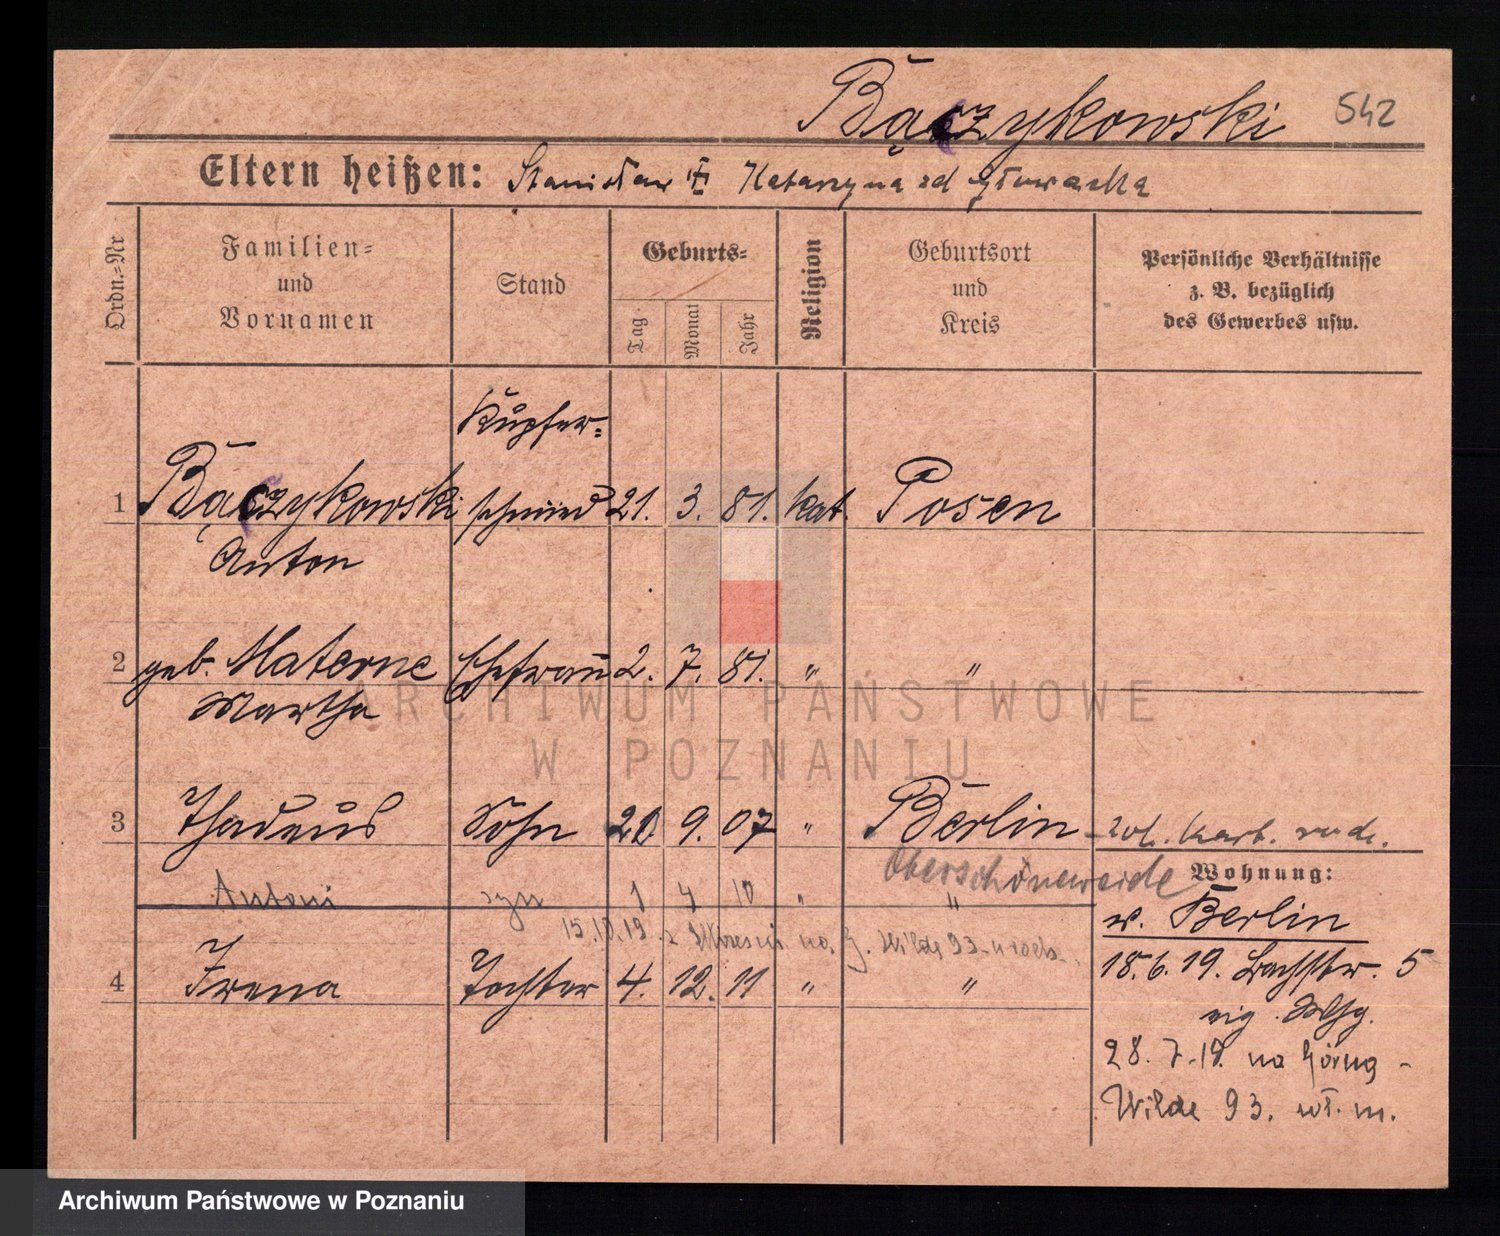 Bączykowski 542
Eltern heißen: Stanisław i Katarzyna zd
Ordn.=Nr
Familien=
und
Vornamen
Stand
Geburts=
Tag
Monat
Jahr
Religion
Geburtsort
und
Kreis
Persönliche Verhältnisse
z. B. bezüglich
des Gewerbes usw.
Kupfer=
1 Bączykowski schmied 21. 3. 81. kat. Posen
Anton
2 geb. Materne Ehefrau 2. 7. 81. " "
Martha
ARCHIWUM PAŃSTWOWE
W POZNANIU
3 Thadeus Sohn 9. 07 " Berlin
Oberschöneweide
Wohnung:
Antoni syn 1 4 10 " "
w. Berlin
15.10.19. z na G. Wilde 93
18.6.19. Bachstr. 5
4 Irena Tochter 4. 12. 11 " "
28. 7. 19. na Górna -
Wilde 93. wł. m.
Archiwum Państwowe w Poznaniu